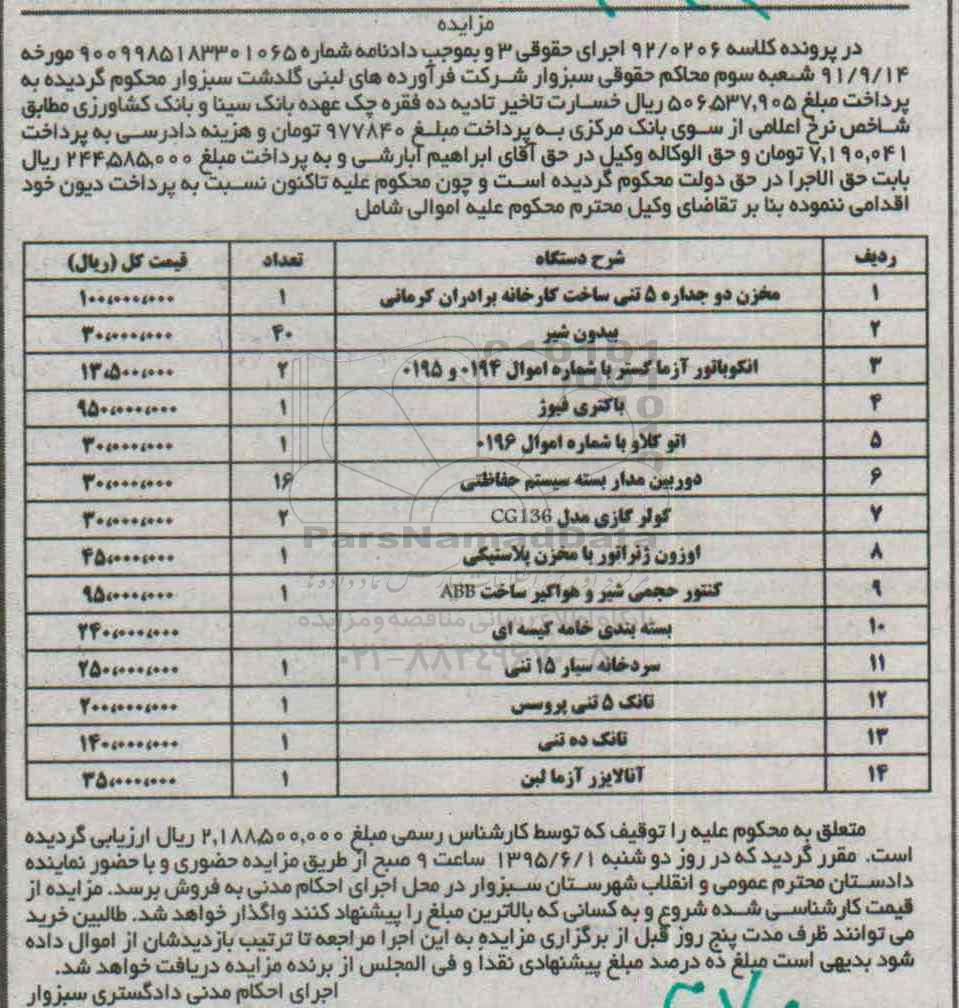 مزایده
در پرونده کلاسه ۹۲/۰۲۰۶ اجرای حقوقی ۳ و بموجب دادنامه شماره ۹۰۰۹۹۸۵۱۸۳۳۰۱۰۶۵ مورخه
۹۱/۹/۱۴ شعبه سوم محاکم حقوقی سبزوار شرکت فرآورده های لبنی گلدشت سبزوار محکوم گردیده به
پرداخت مبلغ ۵۰۶,۵۳۷,۹۰۵ ریال خسارت تاخیر تادیه ده فقره چک عهده بانک سینا و بانک کشاورزی مطابق
شاخص نرخ اعلامی از سوی بانک مرکزی به پرداخت مبلغ ۹۷۷۸۴۰ تومان و هزینه دادرسی به پرداخت
۷,۱۹۰,۰۴۱ تومان و حق الوکاله وکیل در حق آقای ابراهیم آبارشی و به پرداخت مبلغ ۲۴۴,۵۸۵,۰۰۰ ریال
بابت حق الاجرا در حق دولت محکوم گردیده است و چون محکوم علیه تاکنون نسبت به پرداخت دیون خود
اقدامی ننموده بنا بر تقاضای وکیل محترم محکوم علیه اموالی شامل
ردیف شرح دستگاه تعداد قیمت کل (ریال)
۱ مخزن دو جداره ۵ تنی ساخت کارخانه برادران کرمانی ۱ ۱۰۰،۰۰۰،۰۰۰
۲ بیدون شیر ۴۰ ۳۰،۰۰۰،۰۰۰
۳ انکوباتور آزما گستر با شماره اموال ۰۱۹۴ و ۰۱۹۵ ۲ ۱۳،۵۰۰،۰۰۰
۴ باکتری فیوژ ۱ ۹۵۰،۰۰۰،۰۰۰
۵ اتو کلاو با شماره اموال ۰۱۹۶ ۱ ۳۰،۰۰۰،۰۰۰
۶ دوربین مدار بسته سیستم حفاظتی ۱۶ ۳۰،۰۰۰،۰۰۰
۷ کولر گازی مدل CG136 ۲ ۳۰،۰۰۰،۰۰۰
۸ اوزون ژنراتور با مخزن پلاستیکی ۱ ۴۵،۰۰۰،۰۰۰
۹ کنتور حجمی شیر و هواگیر ساخت ABB ۱ ۹۵،۰۰۰،۰۰۰
۱۰ بسته بندی خامه کیسه ای ۲۴۰،۰۰۰،۰۰۰
۱۱ سردخانه سیار ۱۵ تنی ۱ ۲۵۰،۰۰۰،۰۰۰
۱۲ تانک ۵ تنی پروسس ۱ ۲۰۰،۰۰۰،۰۰۰
۱۳ تانک ده تنی ۱ ۱۴۰،۰۰۰،۰۰۰
۱۴ آنالایزر آزما لبن ۱ ۳۵،۰۰۰،۰۰۰
ParsNamadData
پایگاه اطلاع رسانی مناقصه و مزایده
متعلق به محکوم علیه را توقیف که توسط کارشناس رسمی مبلغ ۲,۱۸۸,۵۰۰,۰۰۰ ریال ارزیابی گردیده
است. مقرر گردید که در روز دو شنبه ۱۳۹۵/۶/۱ ساعت ۹ صبح از طریق مزایده حضوری و با حضور نماینده
دادستان محترم عمومی و انقلاب شهرستان سبزوار در محل اجرای احکام مدنی به فروش برسد. مزایده از
قیمت کارشناسی شده شروع و به کسانی که بالاترین مبلغ را پیشنهاد کنند واگذار خواهد شد. طالبین خرید
می توانند ظرف مدت پنج روز قبل از برگزاری مزایده به این اجرا مراجعه تا ترتیب بازدیدشان از اموال داده
شود بدیهی است مبلغ ده درصد مبلغ پیشنهادی نقدا و فی المجلس از برنده مزایده دریافت خواهد شد.
اجرای احکام مدنی دادگستری سبزوار